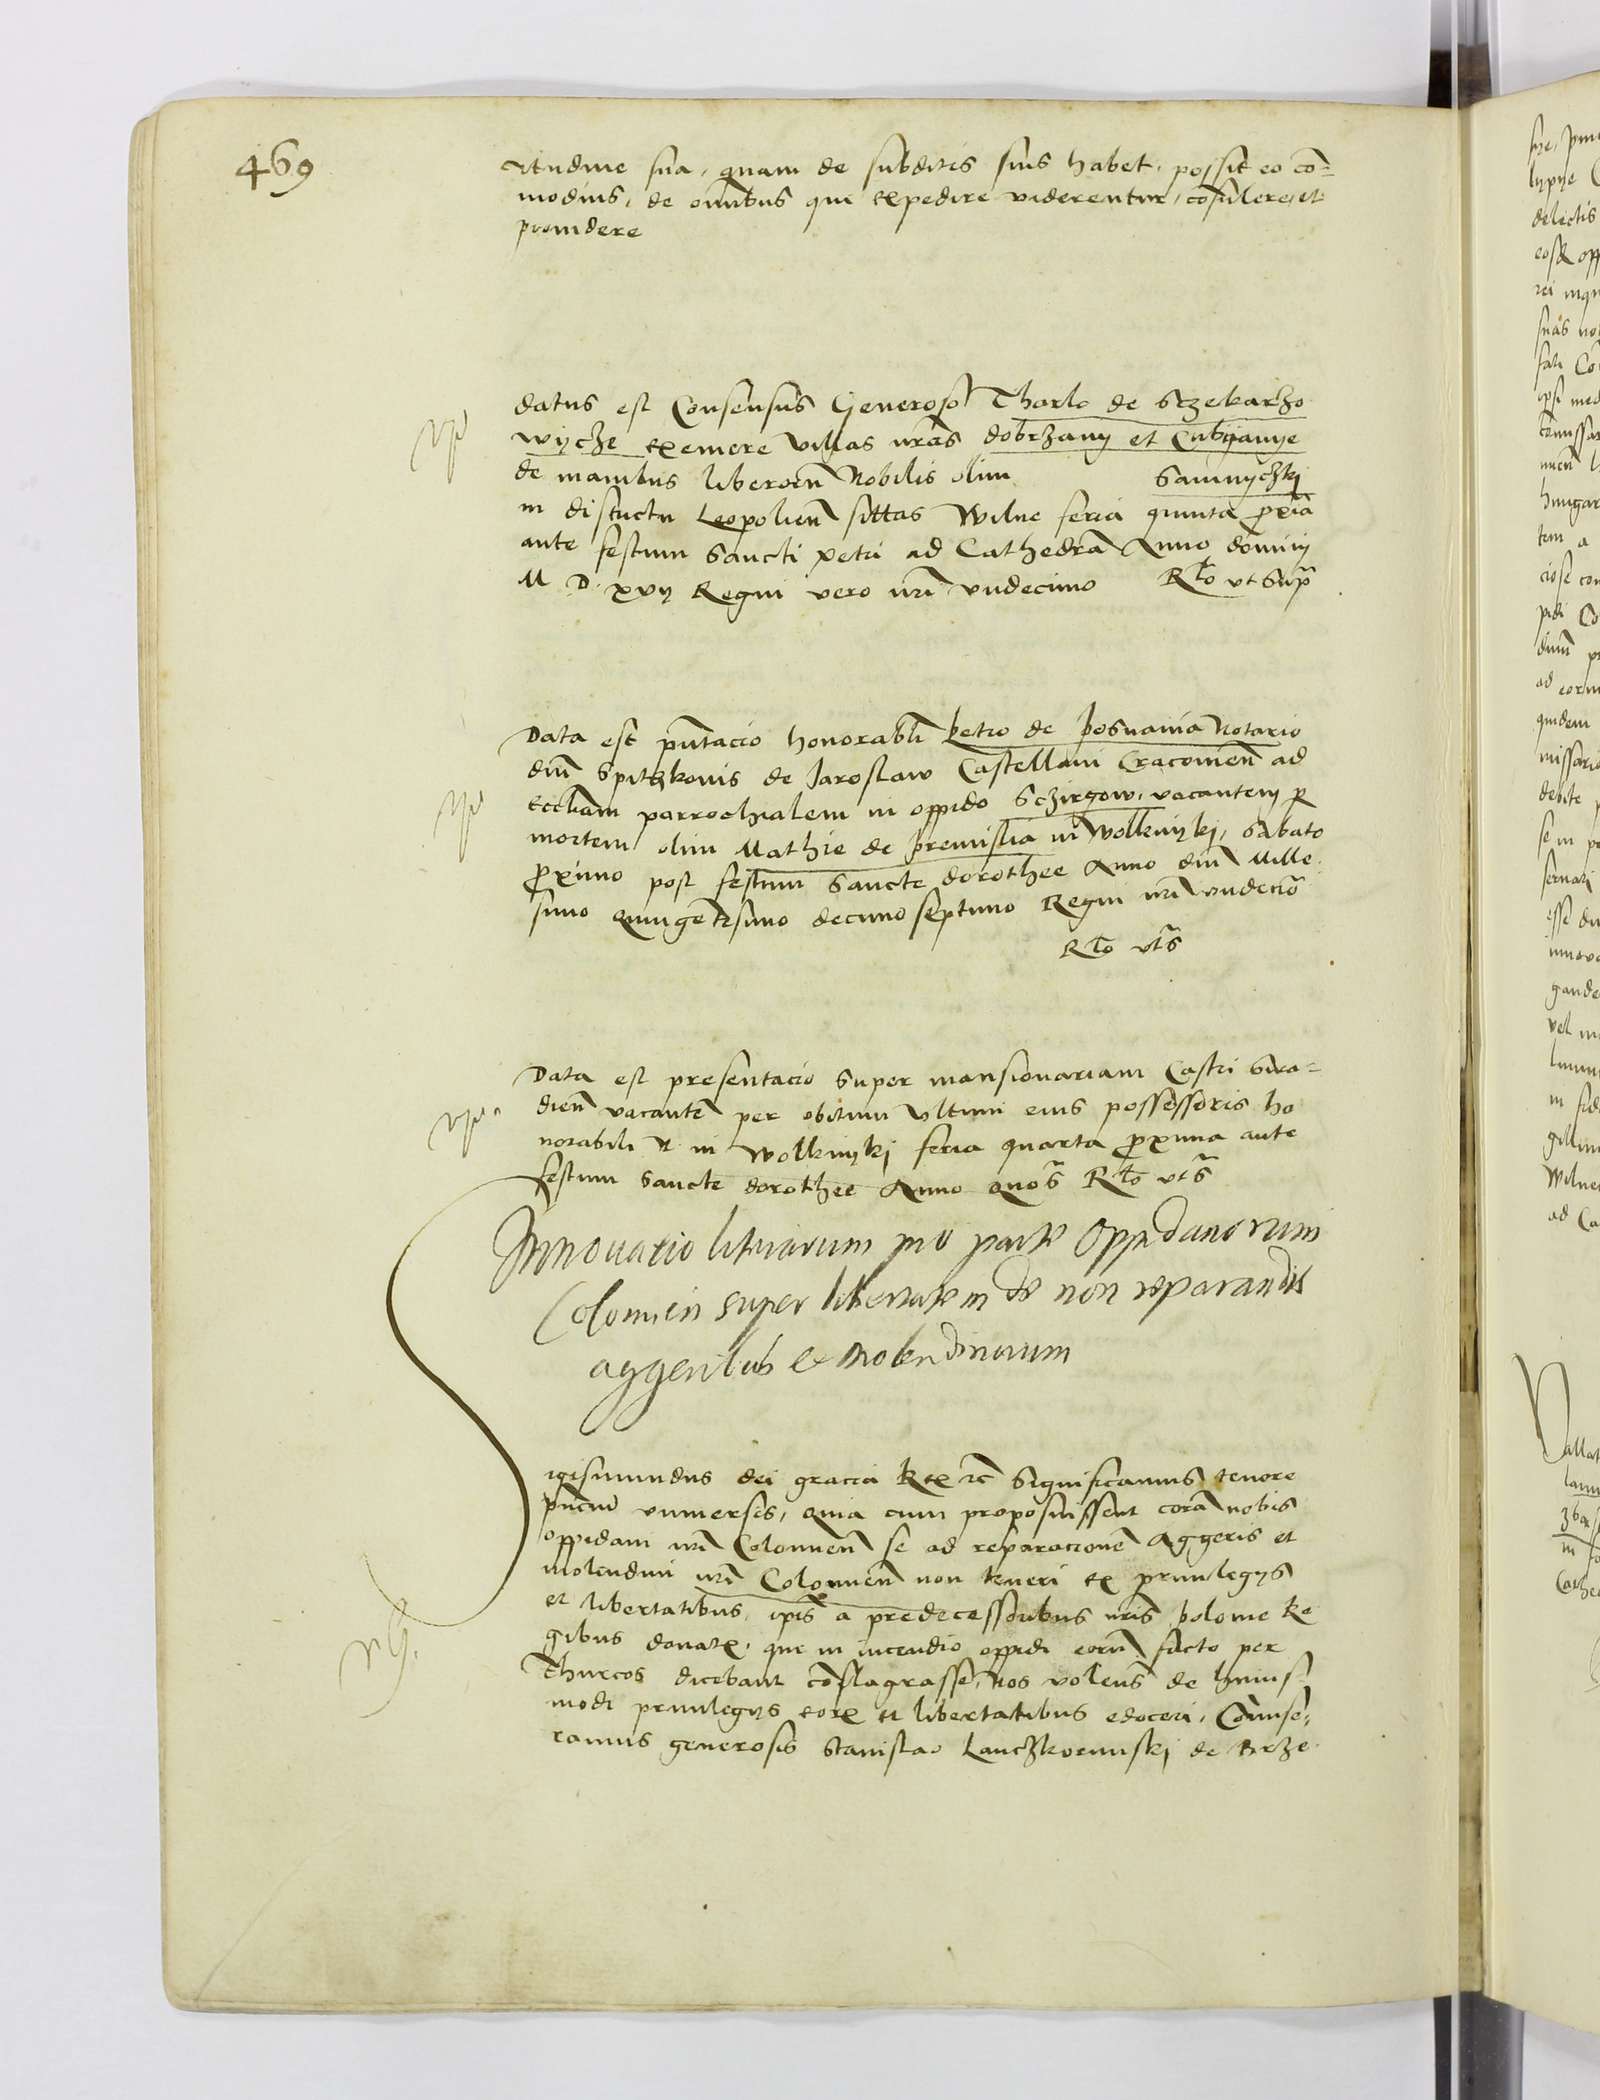 469
itudine sua, quam de subditis suis habet, possit eo co-
modius, de omnibus que expedire viderentur, consulere et
providere
datus est Consensus Generoso Tharlo de Sczekarzo
wycze exemere villas nras dobrzany et Cubÿanye
de manibus liberorum Nobilis olim Sawnyczkj
in districtu Leopolien sittas Wilne feria quinta proxia
ante festum Sancti petri ad Cathedra Anno dominj
M D xvij Regni vero nri vndecimo Rlo vt Supra
Data est pntacio honorabli petro de posnania Notario
dni Spitzkonis de Jaroslaw Castellani Cracovien ad
eccliam parrochialem in oppido Sczirzow, vacantem per
mortem olim Mathie de premislia in Wolkinykj, Sabato
proximo post festum Sancte dorothee Anno dni Mille
simo quingentesimo decimo septimo Regni nri vndecio
Rlo vts
Data est presentacio super mansionariam Castri Sira-
dien vacante per obitum vltimi eius possessoris ho
norabili N in Wolkinykj feria quarta proxima ante
festum Sancte dorothee Anno quo s Rlo vts
Innovatio literarum pro parte Oppidanorum
Colomien super libertatem de non reparandis
aggeribus et molendinarum
igismundus dei gracia Rex rc Significamus tenore
pncium vniversis, quia cum proposuissent cora nobis
oppidani nri Colomien se ad reparacione Aggeris et
molendini nri Colomien non teneri ex privilegijs
et libertatibus, ipis a predecessoribus nris polonie Re
gibus donatis, que in incendio oppidi eorum facto per
Thurcos dicebant conflagrasse, nos volens de huius
modi privilegijs eorum et libertatibus edoceri, Comise-
ramus generosis Stanislao Lanczkorunskj de Brze